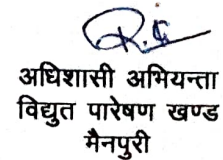 अधिशासी अभियन्ता
विद्युत पारेषण खण्ड
मैनपुरी